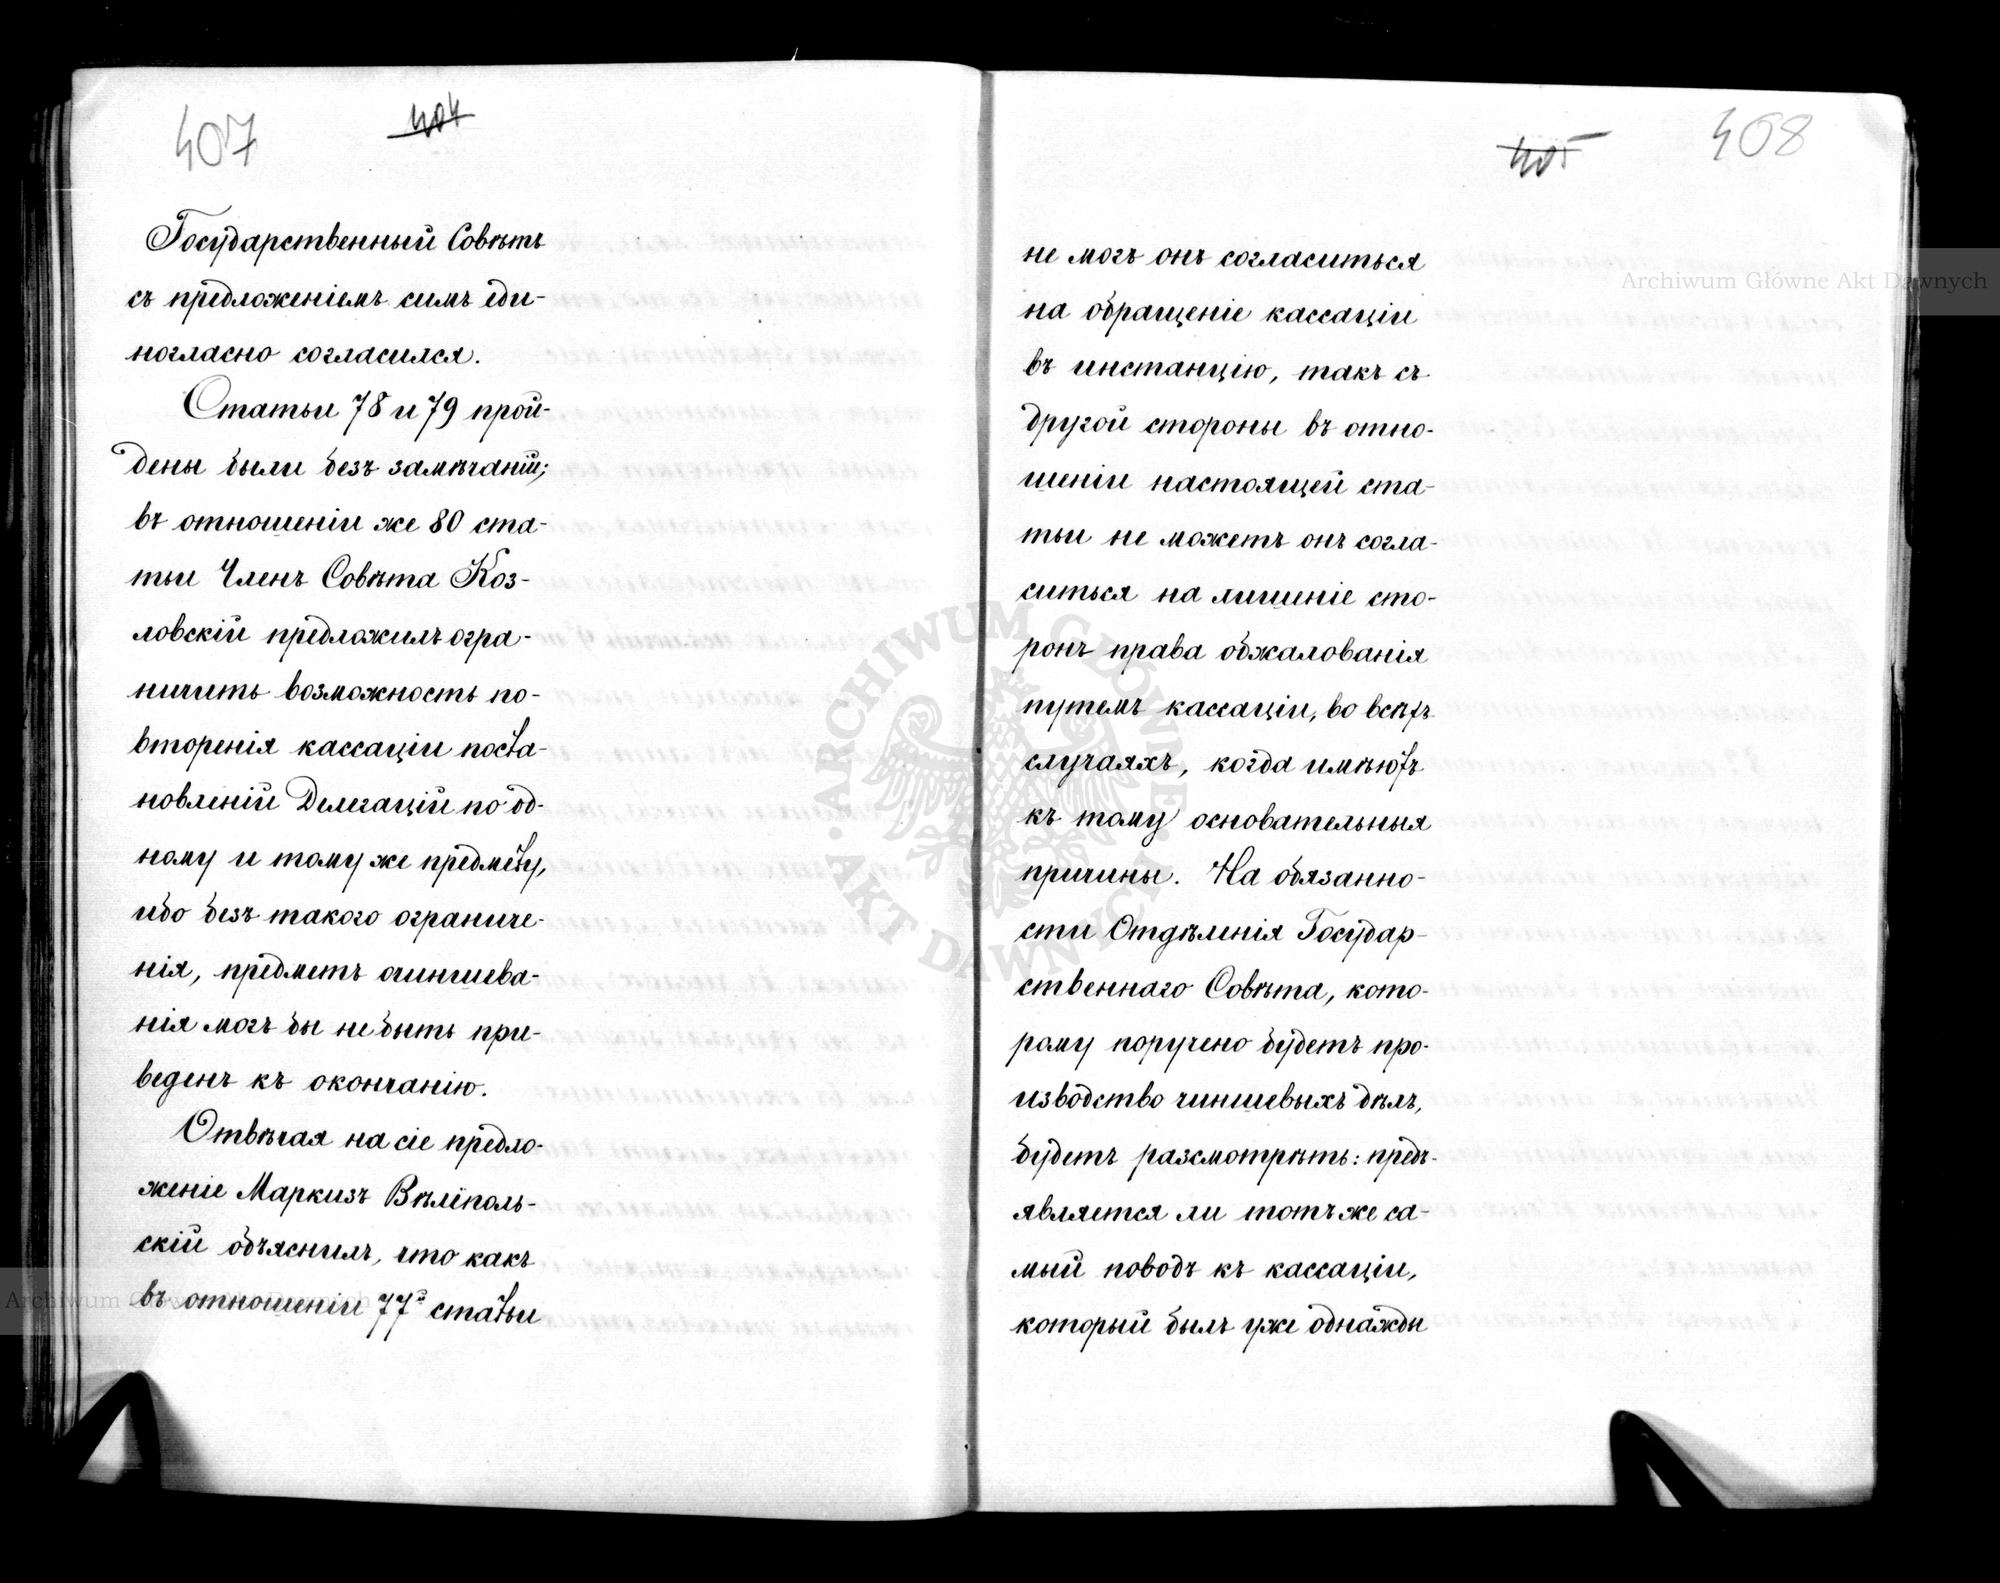 407
404
Государственный Совѣтъ
съ предложеніемъ симъ еди-
ногласно согласился.
Статьи 78 и 79 прой-
дены были безъ замѣчаній;
въ отношеніи же 80 ста-
тьи Членъ Совѣта Коз-
ловскій предложилъ огра-
ничить возможность по-
вторенія кассаціи поста-
новленій Делегацій по од-
ному и тому же предмету,
ибо безъ такого ограниче-
нія, предметъ очиншева-
нія могъ бы не быть при-
веденъ къ окончанію.
Отвѣчая на сіе предло-
женіе Маркизъ Вѣліполь-
скій объяснилъ, что какъ
въ отношеніи 77й статьи
405
408
не могъ онъ согласиться
на обращеніе кассаціи
въ инстанцію, такъ съ
другой стороны въ отно-
шеніи настоящей ста-
тьи не можетъ онъ согла-
ситься на лишеніе сто-
ронъ права обжалованія
путемъ кассаціи, во всѣхъ
случаяхъ, когда имѣютъ
къ тому основательныя
причины. На обязанно-
сти Отдѣленія Государ-
ственнаго Совѣта, кото-
рому поручено будетъ про-
изводство чиншевыхъ дѣлъ,
будетъ разсмотрѣть: предъ-
является ли тотъ же са-
мый поводъ къ кассаціи,
который былъ уже однажды
Archiwum Główne Akt Dawnych
ARCHIWUM GŁÓWNE
AKT DAWNYCH
Archiwum Główne Akt Dawnych